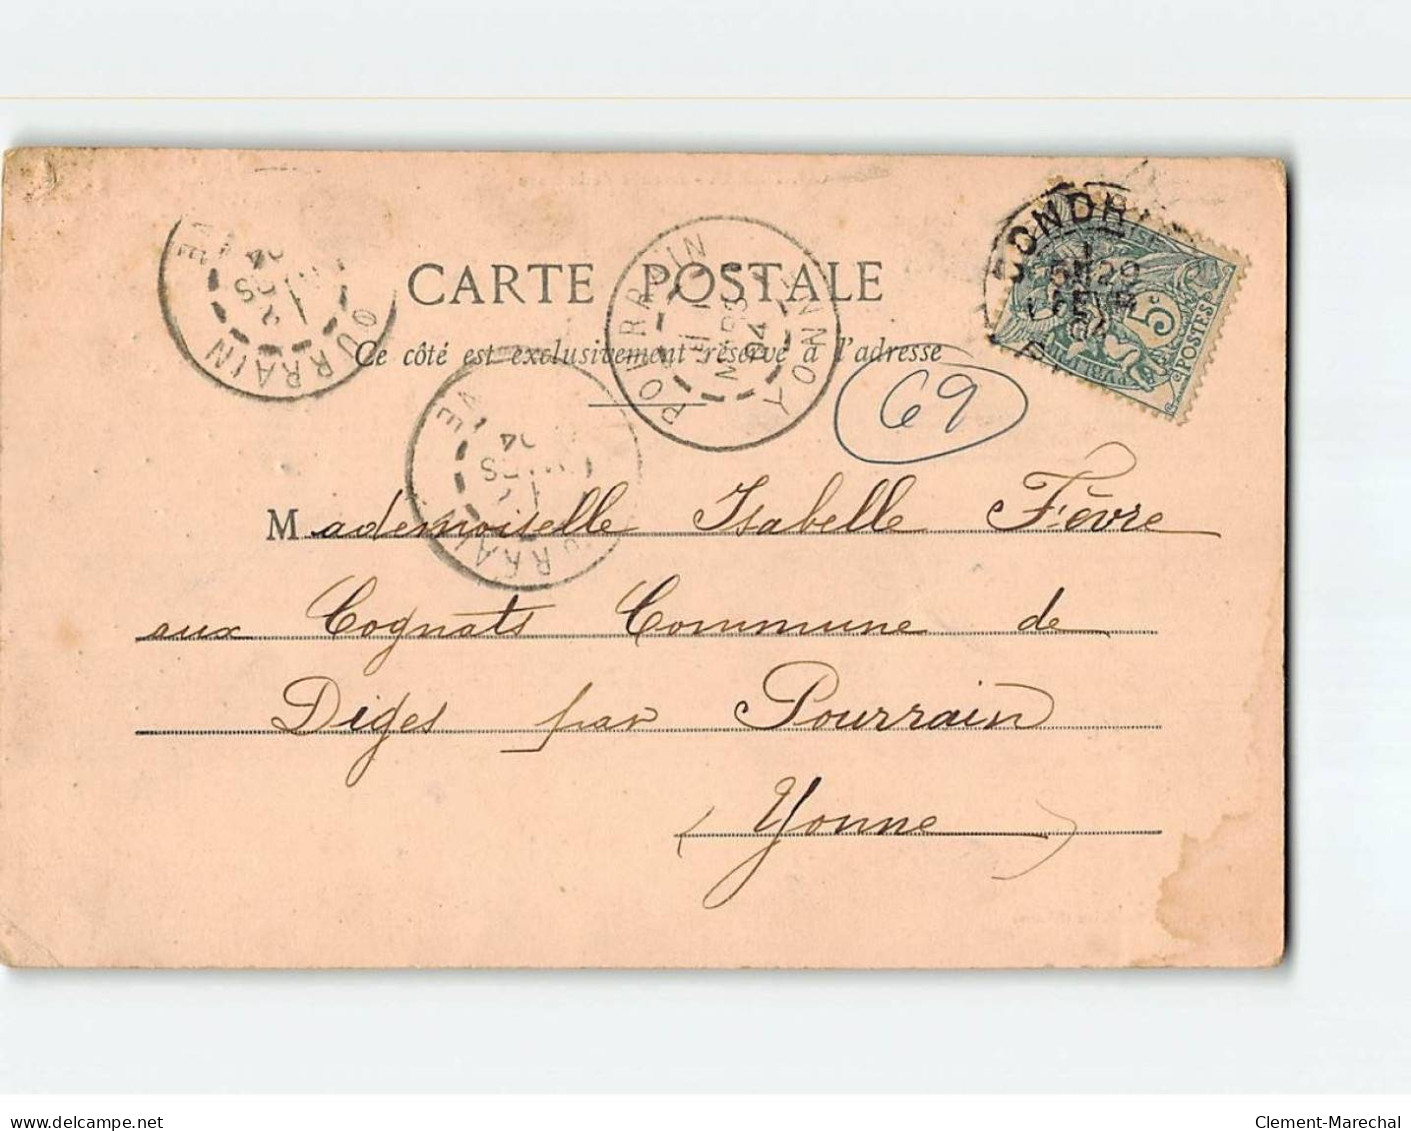 CARTE POSTALE
Ce côté est exclusivement réservé à l'adresse
69
POURRAIN
MARS
04
YONNE
5c
POSTES
Mademoiselle Isabelle Fèvre
aux Cognats Commune de
Diges par Pourrain
(Yonne)
www.delcampe.net
Clement-Marechal